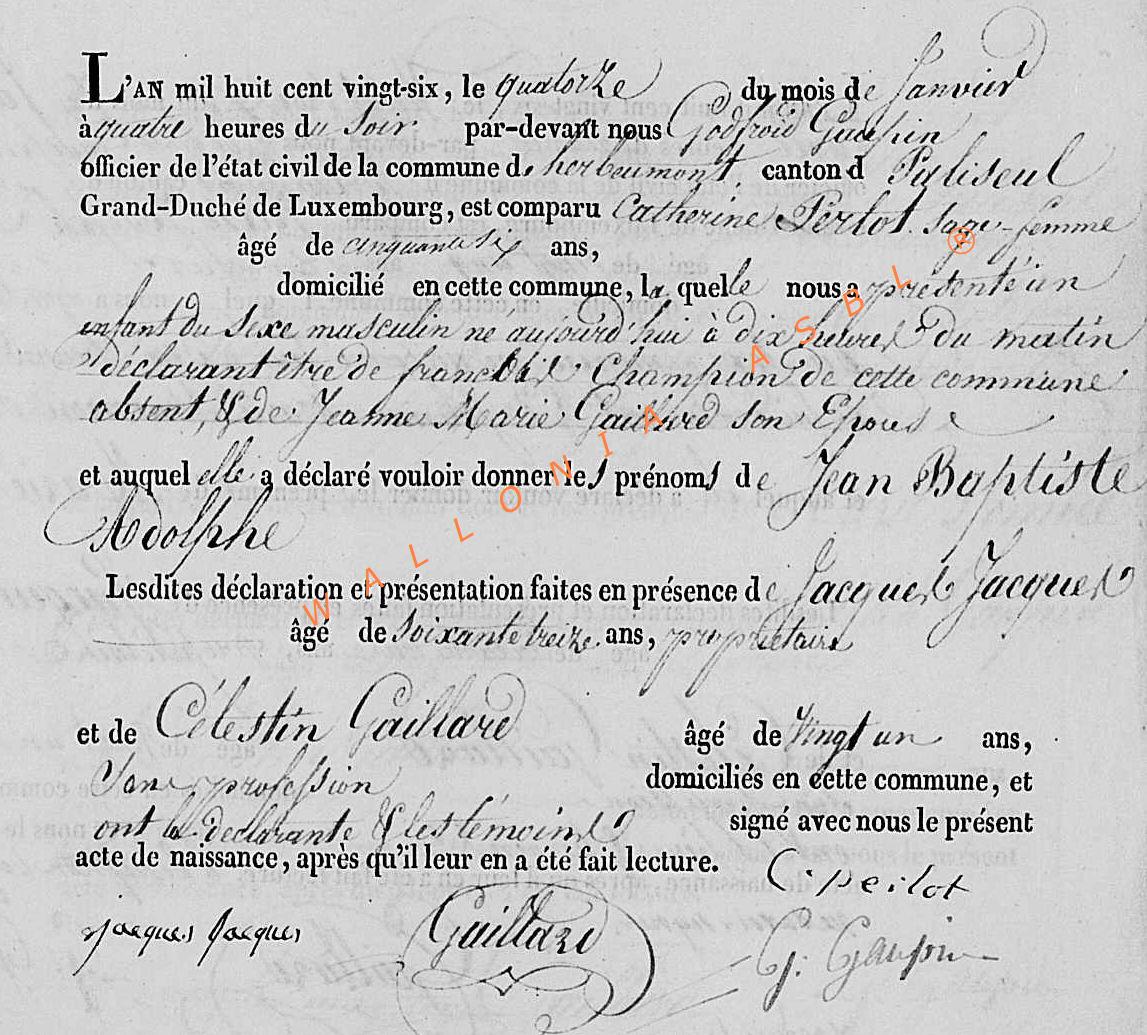 L'AN mil huit cent vingt-six, le quatorze du mois de Janvier
à quatre heures du Soir par-devant nous Godfroid Gaupin
officier de l'état civil de la commune de herbeumont canton d Paliseul
Grand-Duché de Luxembourg, est comparu Catherine Perlot Sage-femme
âgé de cinquante six ans,
domicilié en cette commune, la quelle nous a présenté un
enfant du Sexe masculin né aujourd'hui à dix heures du matin
déclarant être de francois Champion de cette commune
absent, & de Jeanne Marie Gaillard son Epouse
et auquel elle a déclaré vouloir donner les prénoms de Jean Baptiste
Adolphe
Lesdites déclaration et présentation faites en présence de Jacques Jacques
âgé de Soixante treize ans, propriétaire
et de Célestin Gaillard âgé de Vingt un ans,
Sans profession domiciliés en cette commune, et
ont la declarante & les témoins signé avec nous le présent
acte de naissance, après qu'il leur en a été fait lecture.
C perlot
jacques jacques Gaillard G. Gaupin
WALLONIA ASBL ®